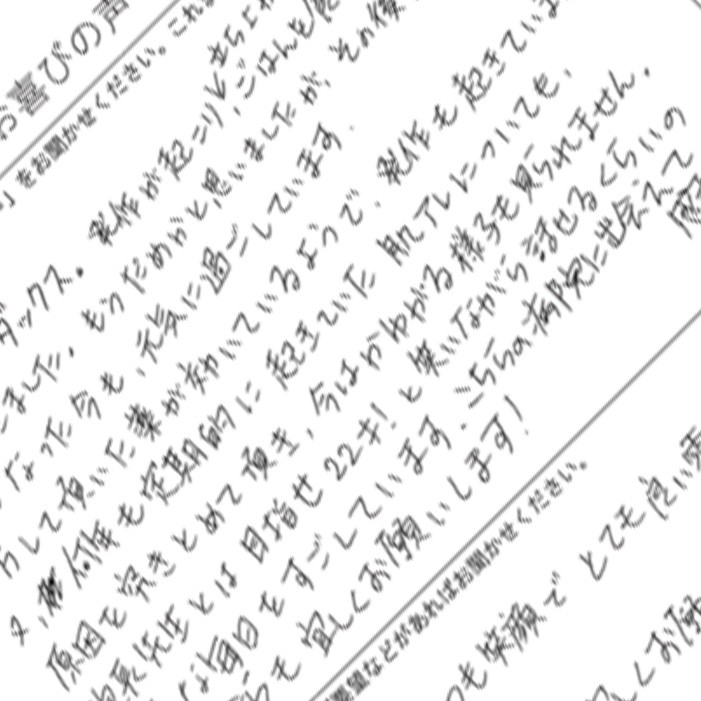 お喜びの声
をお聞かせください。これ
ダックス。発作が起こり
ました。もうだめかと思いましたが その後
なった今も、元気に過ごしています。
して頂いた薬が効いているようで、発作も起きていま
定期的に起きていた 肌アレについても、
原因を突きとめて頂き、今はかゆがる様子も見られません。
先生とは 目指せ22才!と笑いながら話せるくらいの
毎日をすごしています。こちらの病院に出会えて
も 宜しくお願いします!
要望などがあればお聞かせください。
も笑顔で とても良い
くお願